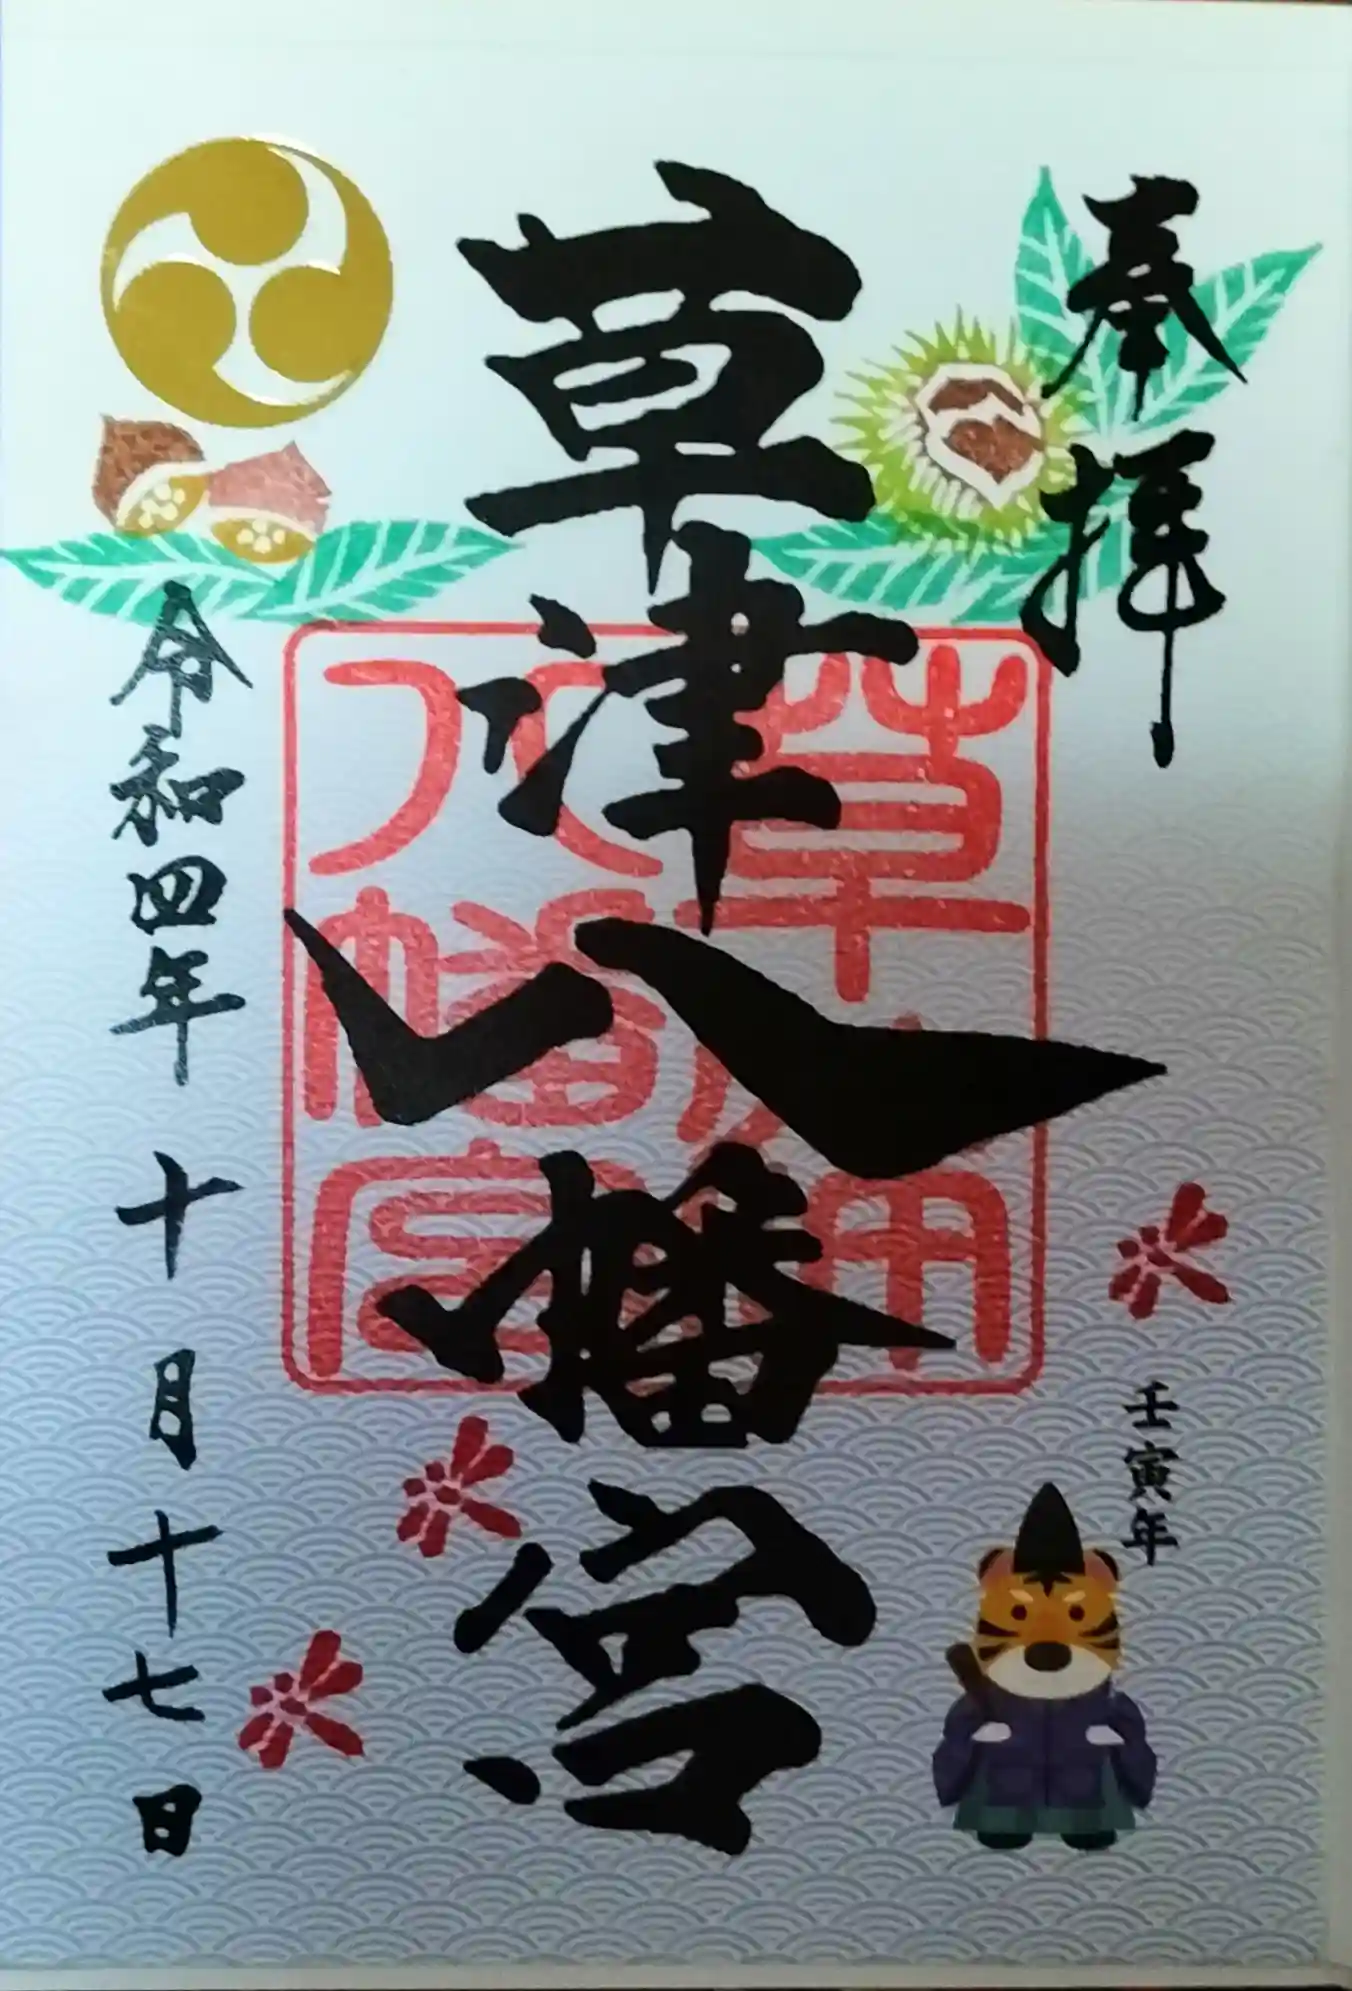 奉拝
壬寅年
草津八幡宮
草津
八幡宮
令和四年 十月十七日